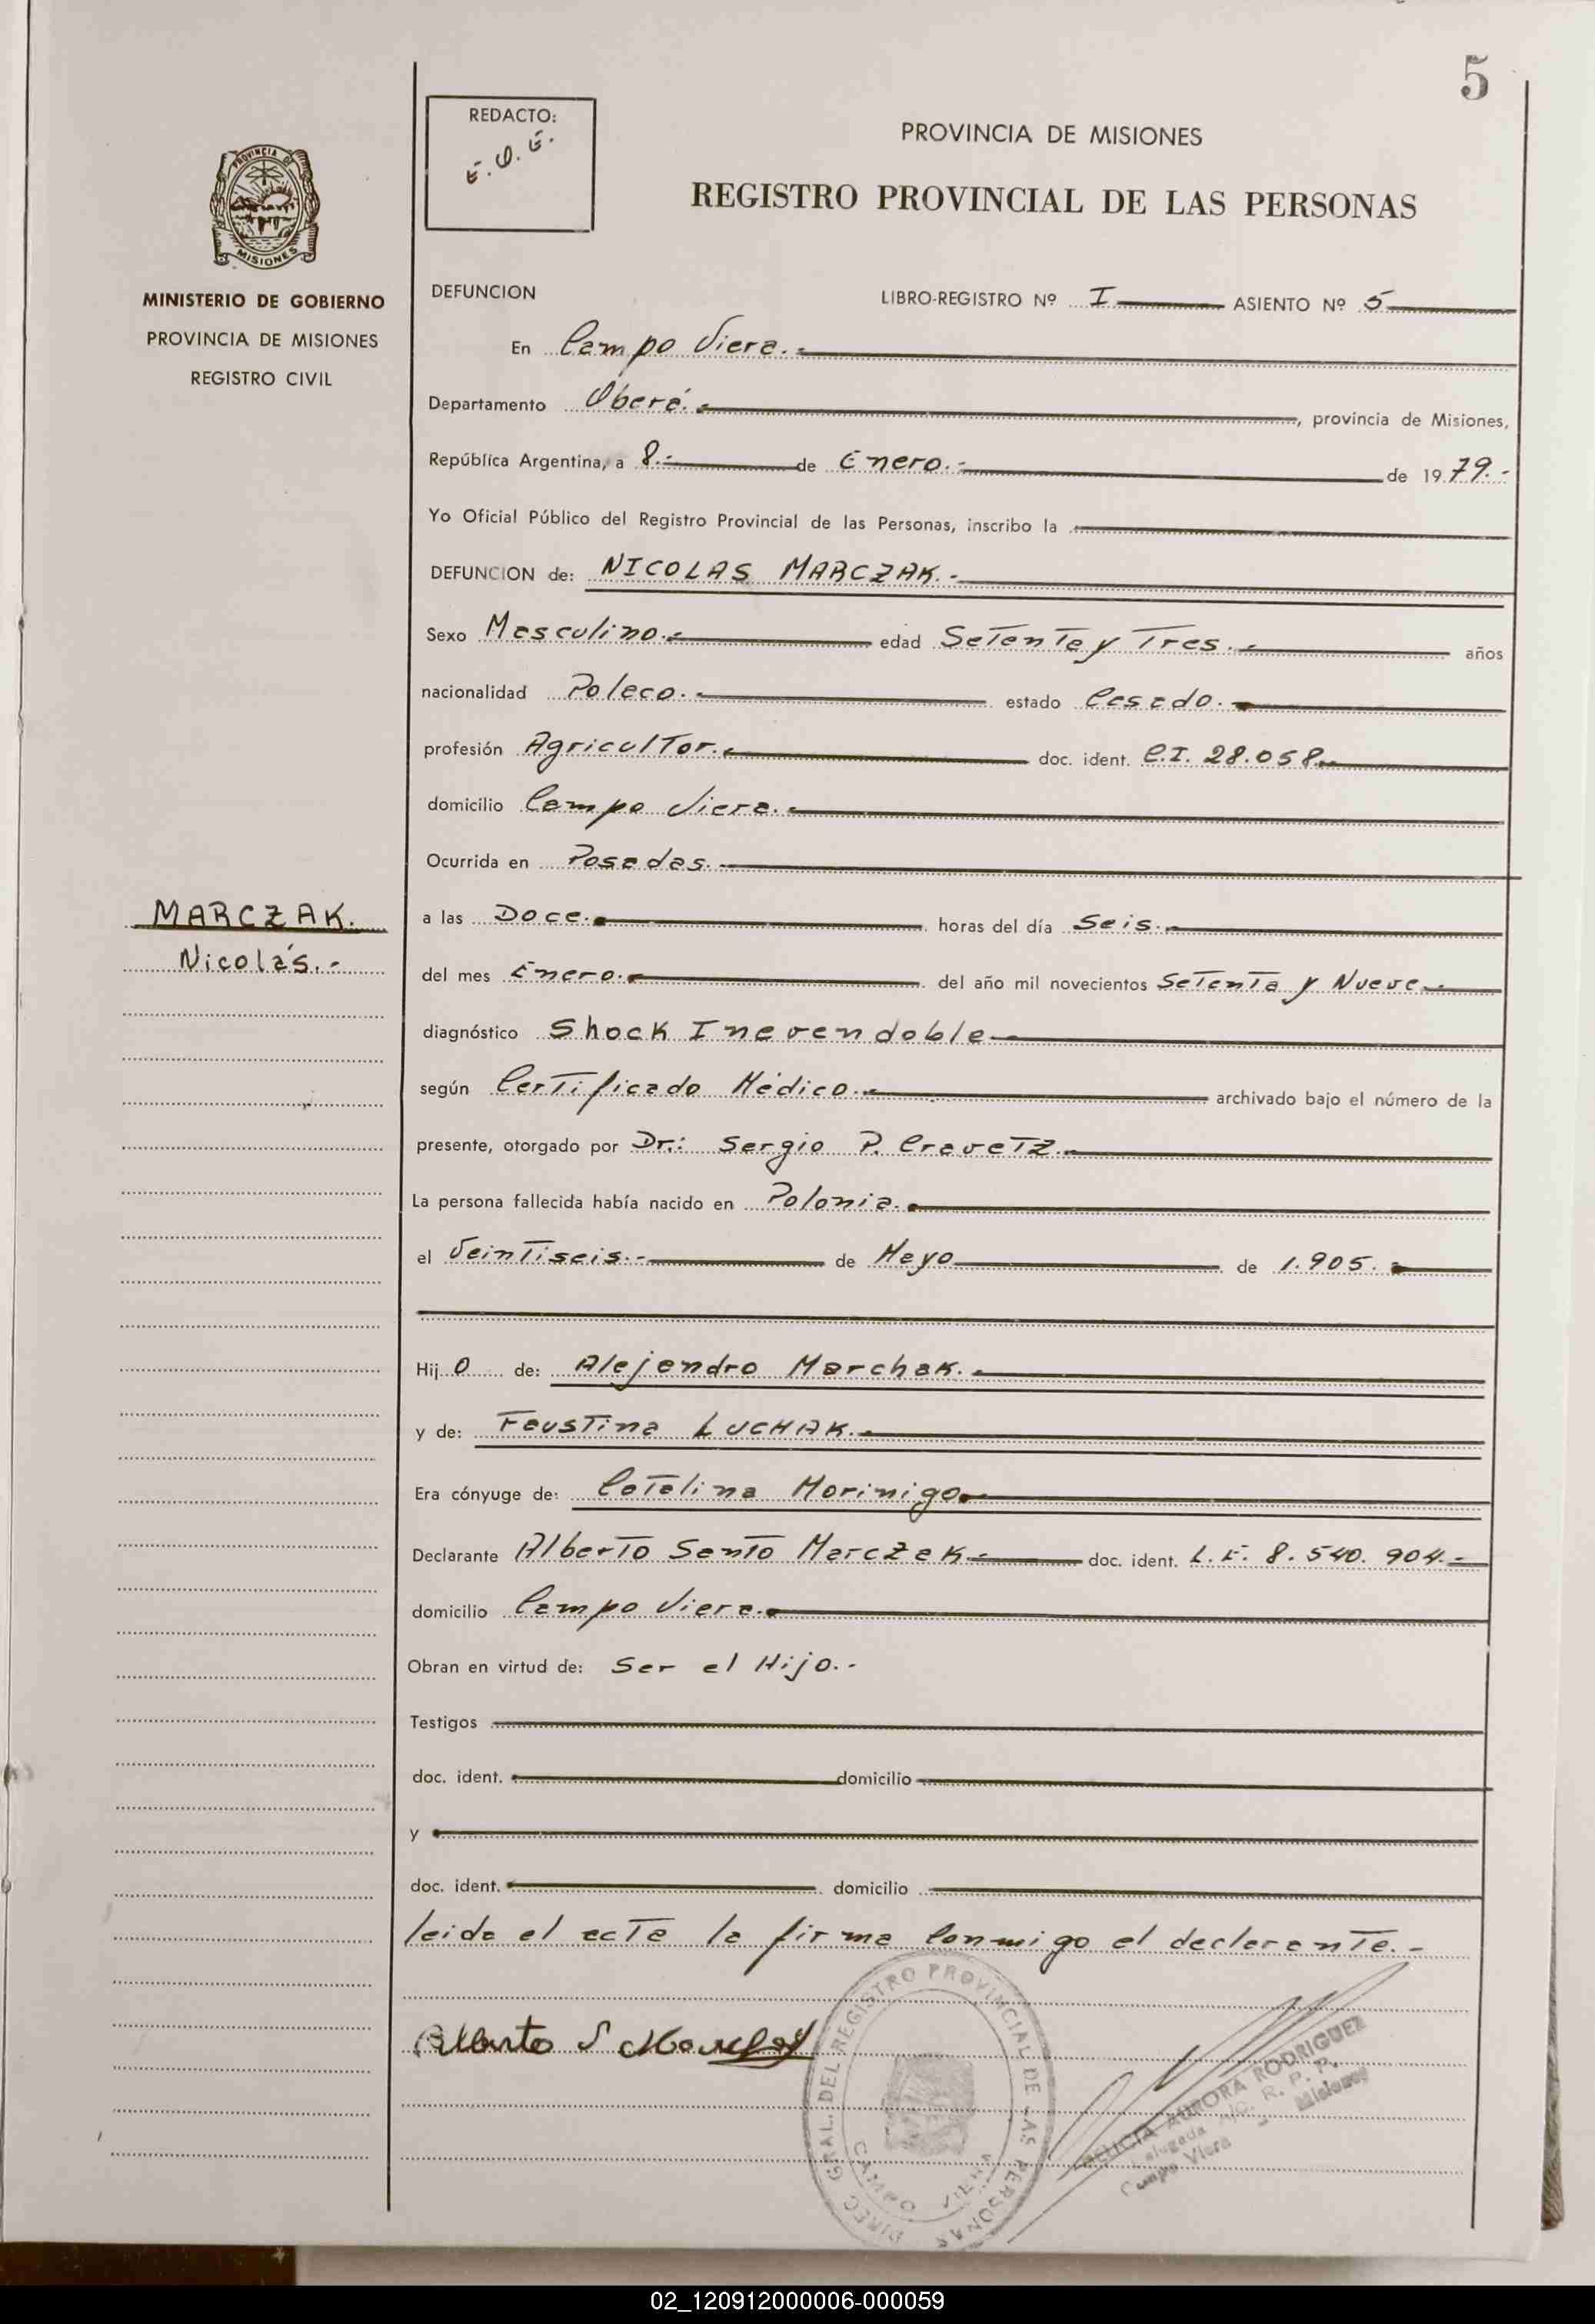 5
REDACTO:
E. O. E.
PROVINCIA DE MISIONES
REGISTRO PROVINCIAL DE LAS PERSONAS
PROVINCIA DE
MISIONES
MINISTERIO DE GOBIERNO
PROVINCIA DE MISIONES
REGISTRO CIVIL
DEFUNCION LIBRO-REGISTRO Nº I ASIENTO Nº 5
En Campo Viera.-
Departamento Oberá.-, provincia de Misiones,
República Argentina, a 8.- de Enero.- de 1979.-
Yo Oficial Público del Registro Provincial de las Personas, inscribo la
DEFUNCION de: NICOLAS MARCZAK.-
Sexo Masculino.- edad Setenta y Tres.- años
nacionalidad Polaco.- estado Casado.-
profesión Agricultor.- doc. ident. C.I. 28.058.-
domicilio Campo Viera.-
Ocurrida en Posadas.-
MARCZAK.
Nicolás.-
a las Doce.- horas del día Seis.-
del mes Enero.- del año mil novecientos Setenta y Nueve.-
diagnóstico Shock Inevendoble
según Certificado Médico.- archivado bajo el número de la
presente, otorgado por Dr.: Sergio P. Cravetz.-
La persona fallecida había nacido en Polonia.-
el Veintiseis.- de Mayo de 1.905.-
Hijo de: Alejandro Marchak.-
y de: Faustina LUCHAK.-
Era cónyuge de: Catalina Morinigo.-
Declarante Alberto Santo Marczak.- doc. ident. L.E. 8.540.904.-
domicilio Campo Viera.-
Obran en virtud de: Ser el Hijo.-
Testigos
doc. ident. domicilio
y
doc. ident. domicilio
leida el acta la firma Conmigo el declarante.-
Alberto S
DIREC. GRAL. DEL REGISTRO PROVINCIAL DE LAS PERSONAS
CAMPO VIERA
FELICIA AURORA RODRIGUEZ
Delegada A/C. R. P. P.
Campo Viera - Misiones
02_120912000006-000059